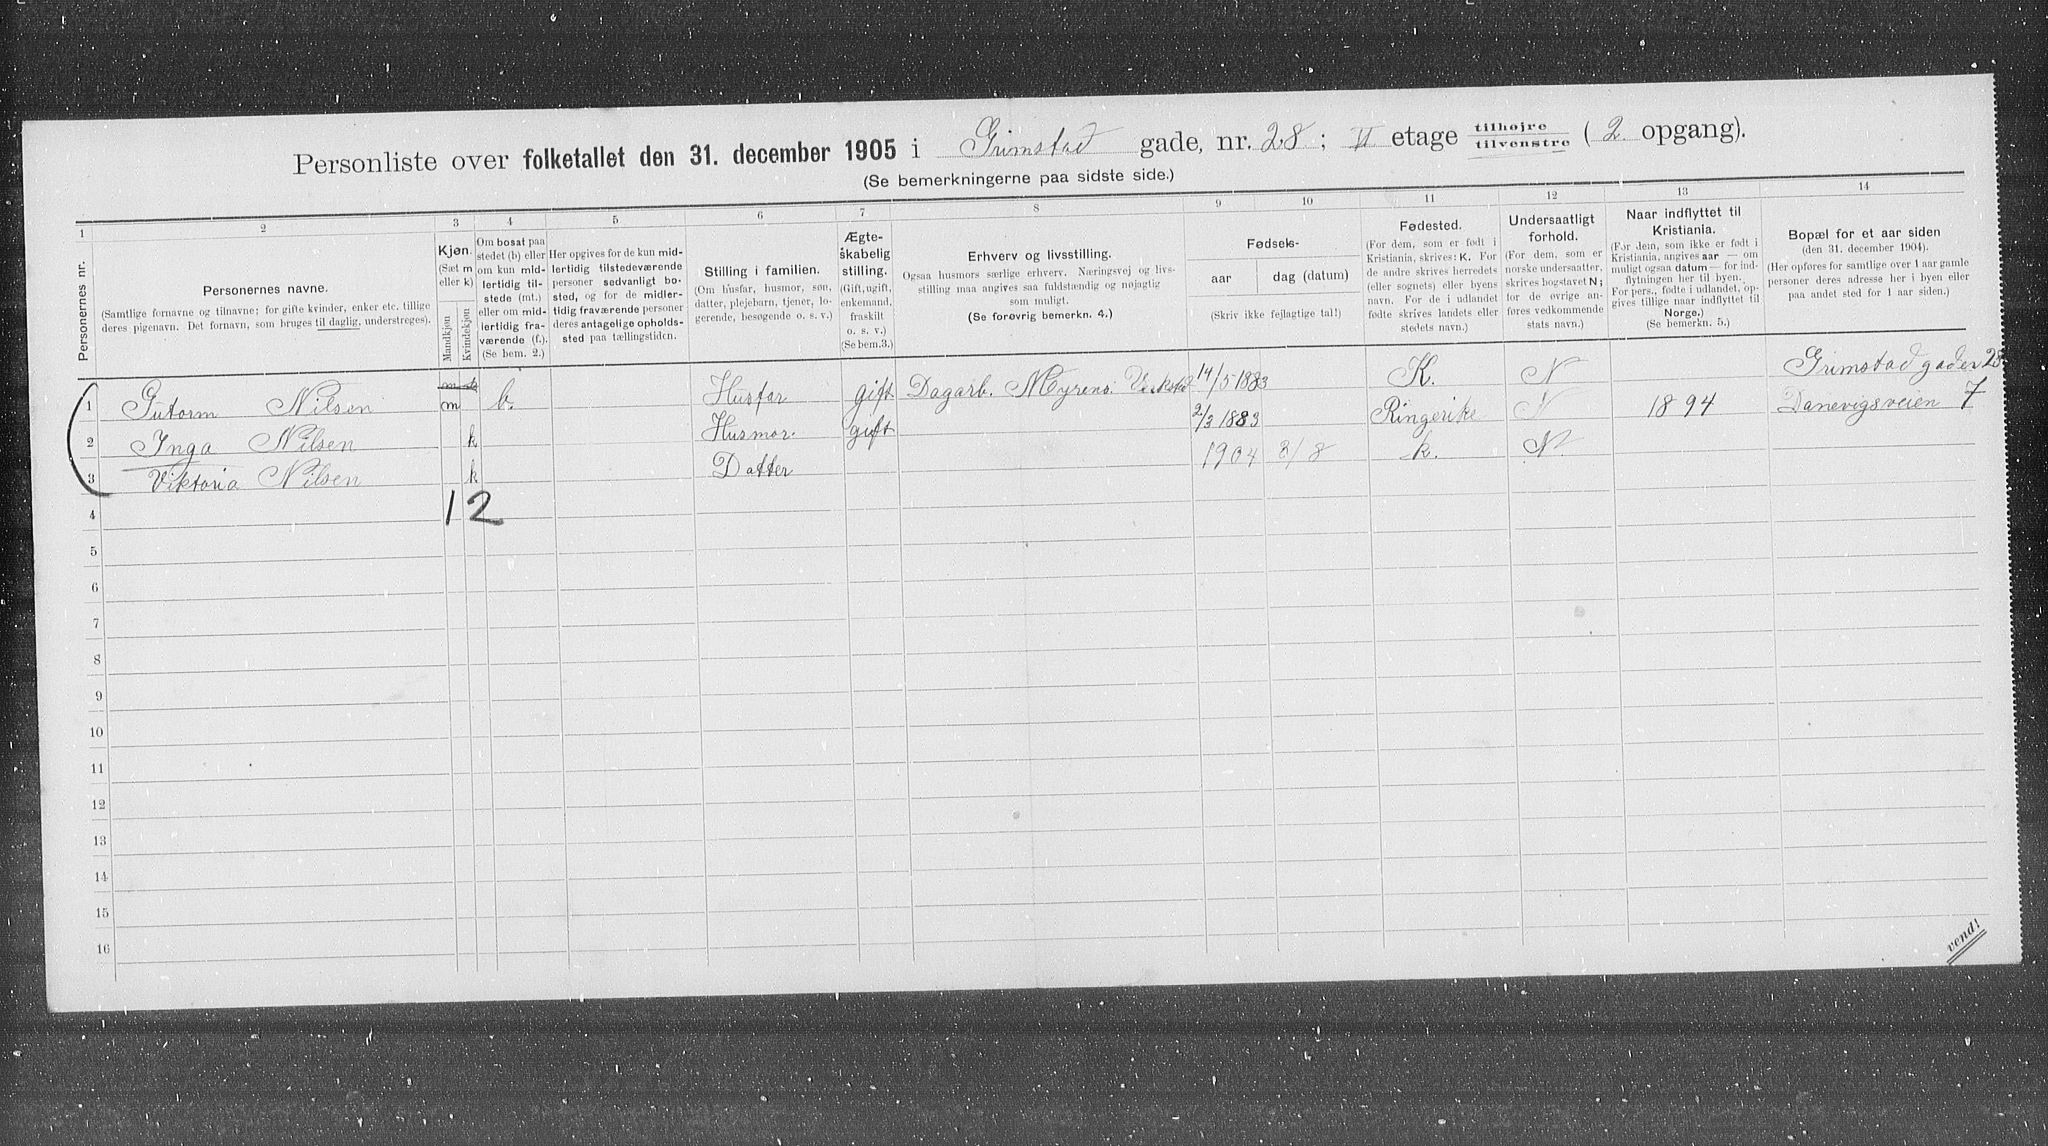 Personliste over folketallet den 31. december 1905 i Grimstad gade, nr. 28; II etage tilhøjre tilvenstre (2 opgang).
(Se bemerkningerne paa sidste side.)
1 2 3 4 5 6 7 8 9 10 11 12 13 14
Personernes nr.
Personernes navne.
(Samtlige fornavne og tilnavne; for gifte kvinder, enker etc. tillige
deres pigenavn. Det fornavn, som bruges til daglig, understreges).
Kjøn.
(Sæt m
eller k)
Mandkjøn
Kvindekjøn
Om bosat paa
stedet (b) eller
om kun mid-
lertidig til-
stede (mt.)
eller om mid-
lertidig fra-
værende (f.).
(Se bem. 2.)
Her opgives for de kun mid-
lertidig tilstedeværende
personer sedvanligt bo-
sted, og for de midler-
tidig fraværende personer
deres antagelige opholds-
sted paa tællingstiden.
Stilling i familien.
(Om husfar, husmor, søn,
datter, plejebarn, tjener, lo-
gerende, besøgende o. s. v.)
Ægte-
skabelig
stilling.
(Gift, ugift,
enkemand,
fraskilt
o. s. v.)
(Se bem. 3.)
Erhverv og livsstilling.
Ogsaa husmors særlige erhverv. Næringsvej og livs-
stilling maa angives saa fuldstændig og nøjagtig
som muligt.
(Se forøvrig bemerkn. 4.)
Fødsels-
aar dag (datum)
(Skriv ikke fejlagtige tal!)
Fødested.
(For dem, som er født i
Kristiania, skrives: K. For
de andre skrives herredets
(eller sognets) eller byens
navn. For de i udlandet
fødte skrives landets eller
stedets navn.)
Undersaatligt
forhold.
(For dem, som er
norske undersaatter,
skrives bogstavet N;
for de øvrige an-
føres vedkommende
stats navn.)
Naar indflyttet til
Kristiania.
(For dem, som ikke er født i
Kristiania, angives aar — om
muligt ogsaa datum — for ind-
flytningen her til byen.
For pers., fødte i udlandet, op-
gives tillige naar indflyttet til
Norge.)
(Se bemerkn. 5.)
Bopæl for et aar siden
(den 31. december 1904).
(Her opføres for samtlige over 1 aar gamle
personer deres adresse her i byen eller
paa andet sted for 1 aar siden.)
1 Gutorm Nilsen m b. Husfar gift Dagarb. Myrens 14/5 1883 K. N Grimstad gaden 28
2 Inga Nilsen k Husmor. gift 2/3 1883 Ringerike N 1894 Danevigsveien 7
3 Viktoria Nilsen k Datter 1904 3/8 k. N
4 1 2
5
6
7
8
9
10
11
12
13
14
15
16
vend!